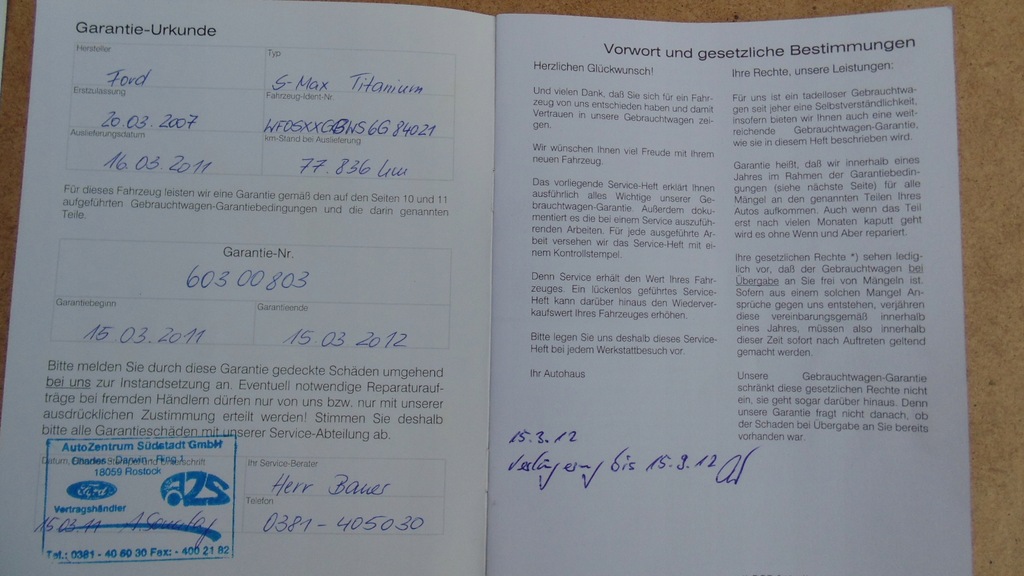 Garantie-Urkunde
Hersteller
Ford
Typ
S-Max Titanium
Erstzulassung
20.03.2007
Fahrzeug-Ident-Nr.
WF0SXXGBWS6G84021
Auslieferungsdatum
16.03.2011
km-Stand bei Auslieferung
77.836 km
Für dieses Fahrzeug leisten wir eine Garantie gemäß den auf den Seiten 10 und 11
aufgeführten Gebrauchtwagen-Garantiebedingungen und die darin genannten
Teile.
Garantie-Nr.
603 00803
Garantiebeginn
15.03.2011
Garantieende
15.03 2012
Bitte melden Sie durch diese Garantie gedeckte Schäden umgehend
bei uns zur Instandsetzung an. Eventuell notwendige Reparaturauf-
träge bei fremden Händlern dürfen nur von uns bzw. nur mit unserer
ausdrücklichen Zustimmung erteilt werden! Stimmen Sie deshalb
bitte alle Garantieschäden mit unserer Service-Abteilung ab.
AutoZentrum Südstadt GmbH
Charles-Darwin-Ring 1
18059 Rostock
Ford
Vertragshändler
15.03.11
Tel.: 0381 - 40 50 30 Fax: - 400 21 82
Ihr Service-Berater
Herr Bauer
Telefon
0381 - 405030
Vorwort und gesetzliche Bestimmungen
Herzlichen Glückwunsch!
Und vielen Dank, daß Sie sich für ein Fahr-
zeug von uns entschieden haben und damit
Vertrauen in unsere Gebrauchtwagen zei-
gen.
Wir wünschen Ihnen viel Freude mit Ihrem
neuen Fahrzeug.
Das vorliegende Service-Heft erklärt Ihnen
ausführlich alles Wichtige unserer Ge-
brauchtwagen-Garantie. Außerdem doku-
mentiert es die bei einem Service auszufüh-
renden Arbeiten. Für jede ausgeführte Ar-
beit versehen wir das Service-Heft mit ei-
nem Kontrollstempel.
Denn Service erhält den Wert Ihres Fahr-
zeuges. Ein lückenlos geführtes Service-
Heft kann darüber hinaus den Wiederver-
kaufswert Ihres Fahrzeuges erhöhen.
Bitte legen Sie uns deshalb dieses Service-
Heft bei jedem Werkstattbesuch vor.
Ihr Autohaus
Ihre Rechte, unsere Leistungen:
Für uns ist ein tadelloser Gebrauchtwa-
gen seit jeher eine Selbstverständlichkeit,
insofern bieten wir Ihnen auch eine weit-
reichende Gebrauchtwagen-Garantie,
wie sie in diesem Heft beschrieben wird.
Garantie heißt, daß wir innerhalb eines
Jahres im Rahmen der Garantiebedin-
gungen (siehe nächste Seite) für alle
Mängel an den genannten Teilen Ihres
Autos aufkommen. Auch wenn das Teil
erst nach vielen Monaten kaputt geht
wird es ohne Wenn und Aber repariert.
Ihre gesetzlichen Rechte *) sehen ledig-
lich vor, daß der Gebrauchtwagen bei
Übergabe an Sie frei von Mängeln ist.
Sofern aus einem solchen Mangel An-
sprüche gegen uns entstehen, verjähren
diese vereinbarungsgemäß innerhalb
eines Jahres, müssen also innerhalb
dieser Zeit sofort nach Auftreten geltend
gemacht werden.
Unsere Gebrauchtwagen-Garantie
schränkt diese gesetzlichen Rechte nicht
ein, sie geht sogar darüber hinaus. Denn
unsere Garantie fragt nicht danach, ob
der Schaden bei Übergabe an Sie bereits
vorhanden war.
15.3.12
Verlängerung bis 15.9.12